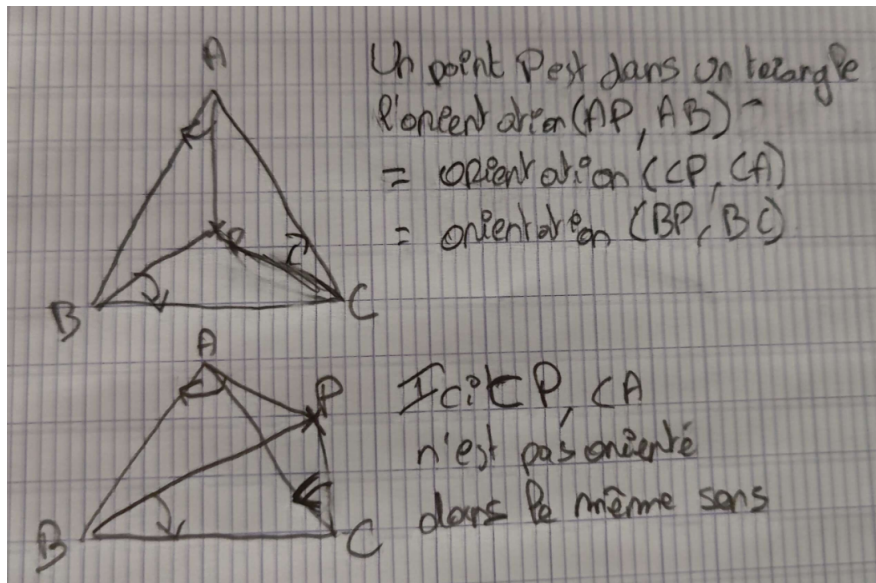 A
Un point P est dans un triangle
l'orientation (AP, AB) =
= orientation (CP, CA)
= orientation (BP, BC)
P
B
C
A
P
Ici CP, CA
n'est pas orienté
dans le même sens
B
C